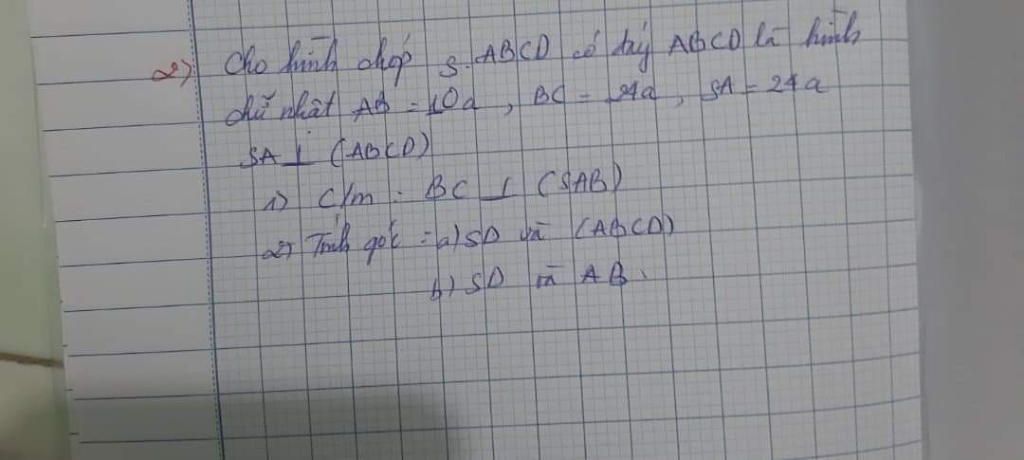 2) Cho hình chóp S.ABCD có đáy ABCD là hình
chữ nhật AB = 10a, BC = 24a, SA = 24a
SA ⊥ (ABCD)
1) C/m : BC ⊥ (SAB)
2) Tính góc : a) SD và (ABCD)
b) SD và AB.